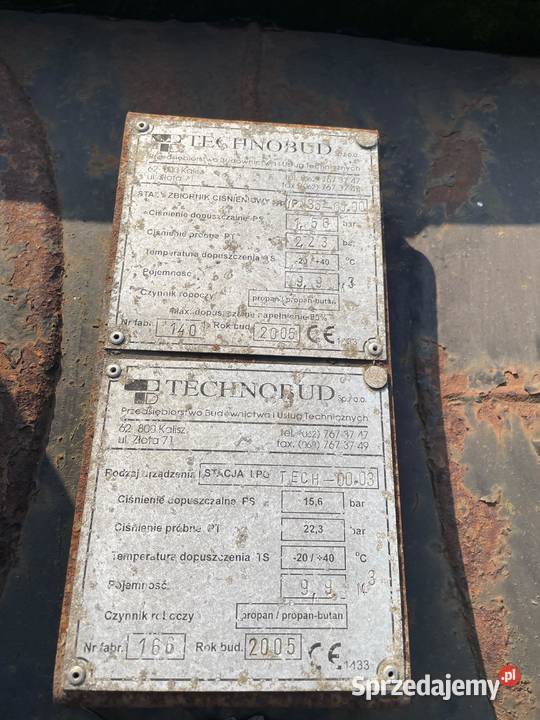 TECHNOBUD Sp.z o.o.
Przedsiębiorstwo Budownictwa i Usług Technicznych
62-809 Kalisz
ul. Złota 71
STAŁY ZBIORNIK CIŚNIENIOWY
Ciśnienie dopuszczalne PS bar
Ciśnienie próbne PT 22,3 bar
Temperatura dopuszczenia TS -20 / +40 °C
Pojemność 9,9 3
Czynnik roboczy propan / propan-butan
Max. dopuszczalne napełnienie 85%
Nr fabr. 140 Rok bud. 2005 CE 1433
TECHNOBUD Sp.z o.o.
Przedsiębiorstwo Budownictwa i Usług Technicznych
62-809 Kalisz tel. (062) 767 37 47
ul. Złota 71 fax. (062) 767 37 49
Rodzaj urządzenia STACJA LPG TECH-00.03
Ciśnienie dopuszczalne PS 15,6 bar
Ciśnienie próbne PT 22,3 bar
Temperatura dopuszczenia TS -20 / +40 °C
Pojemność 9,9 M3
Czynnik roboczy propan / propan-butan
Nr fabr. 166 Rok bud. 2005 CE 1433
Sprzedajemy.pl